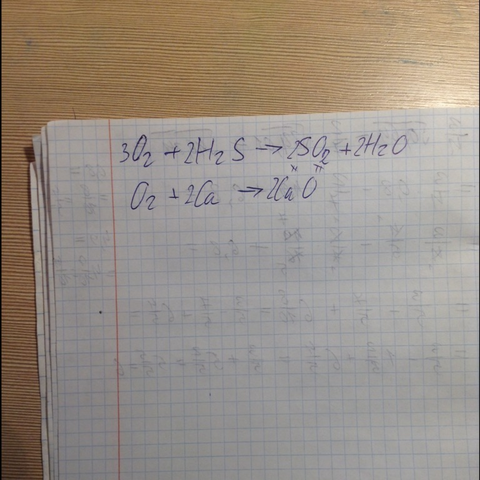 3O₂ + 2H₂S → 2SO₂ + 2H₂O
O₂ + 2Ca → 2CaO